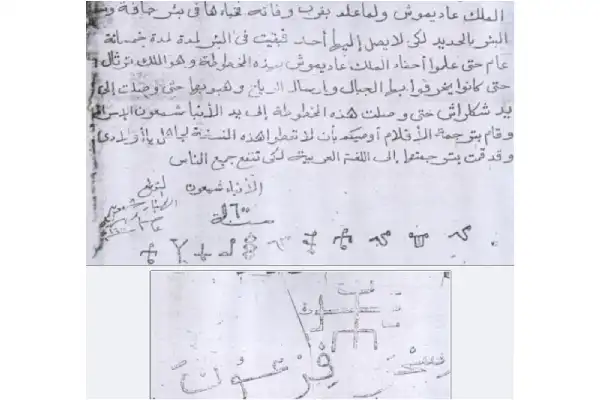 الملك عاديموش ولما علم بقرب وفاته خباها في بئر جافة وسد
البئر بالحديد لكي لا يصل إليها أحد فبقيت في البئر لمدة خمسمائة
عام حتى علموا أحفاد الملك عاديموش بهذه المخطوطة وهو الملك
حتى كانوا يخرقوا بها الجبال وإرسال الرياح وهبوبها حتى وصلت إلى
يد شكاراش حتى وصلت هذه المخطوطة إلى يد الأنبا شمعون
وقام بترجمة الأقلام أوصيكم بأن لا تعطوا هذه النسخة لجاهل يا أولادي
وقد قمت بترجمتها إلى اللغة العربية لكي تنفع جميع الناس
الأنبا شمعون
سنة
سحر فِرْعُون